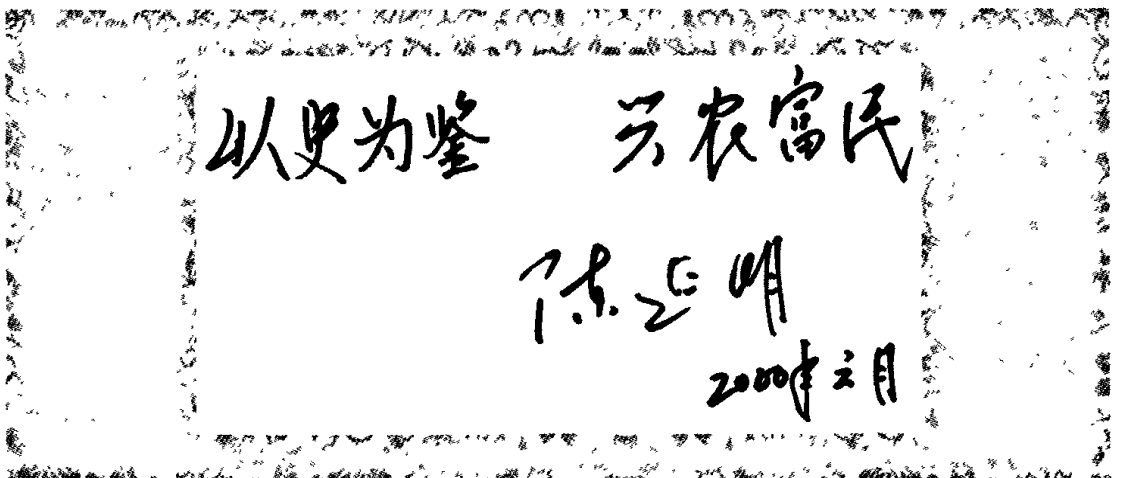 以史为鉴 兴农富民
陈延明
2000年六月